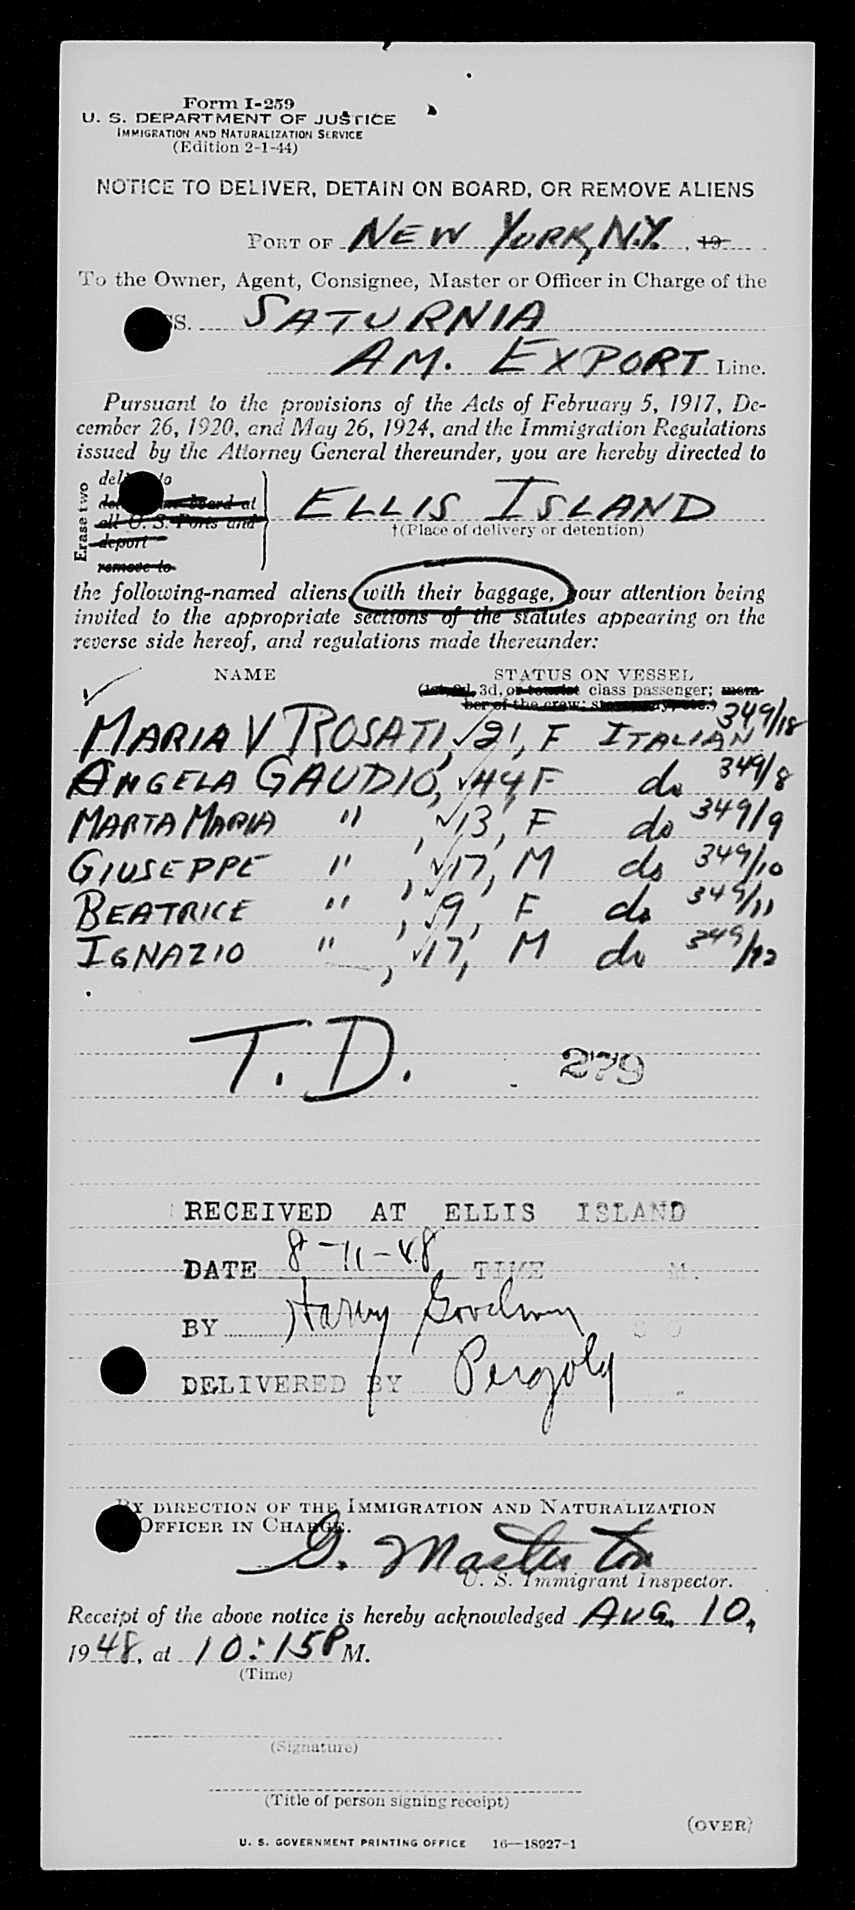 Form I-259
U. S. DEPARTMENT OF JUSTICE
IMMIGRATION AND NATURALIZATION SERVICE
(Edition 2-1-44)
NOTICE TO DELIVER, DETAIN ON BOARD, OR REMOVE ALIENS
PORT OF NEW YORK, N.Y., 19
To the Owner, Agent, Consignee, Master or Officer in Charge of the
SS. SATURNIA
AM. EXPORT Line.
Pursuant to the provisions of the Acts of February 5, 1917, De-
cember 26, 1920, and May 26, 1924, and the Immigration Regulations
issued by the Attorney General thereunder, you are hereby directed to
Erase two
to
board at
all U. S. Ports and
deport
remove to
ELLIS ISLAND
†(Place of delivery or detention)
the following-named aliens, with their baggage, your attention being
invited to the appropriate sections of the statutes appearing on the
reverse side hereof, and regulations made thereunder:
NAME STATUS ON VESSEL
3d, or tourist class passenger; mem-
ber of the crew;
MARIA V ROSATI, 21, F ITALIAN 349/18
ANGELA GAUDIO, 44, F do 349/8
MARTA MARIA " , 13, F do 349/9
GIUSEPPE " , 17, M do 349/10
BEATRICE " , 9, F do 349/11
IGNAZIO " , 17, M do 349/12
T. D. 279
RECEIVED AT ELLIS ISLAND
DATE 8-11-48 TIME M.
BY Harry Goodwin
DELIVERED BY
BY DIRECTION OF THE IMMIGRATION AND NATURALIZATION
OFFICER IN CHARGE.
G. Masterton
U. S. Immigrant Inspector.
Receipt of the above notice is hereby acknowledged AUG. 10,
1948, at 10:15P M.
(Time)
(Signature)
(Title of person signing receipt)
(OVER)
U. S. GOVERNMENT PRINTING OFFICE 16—18927-1